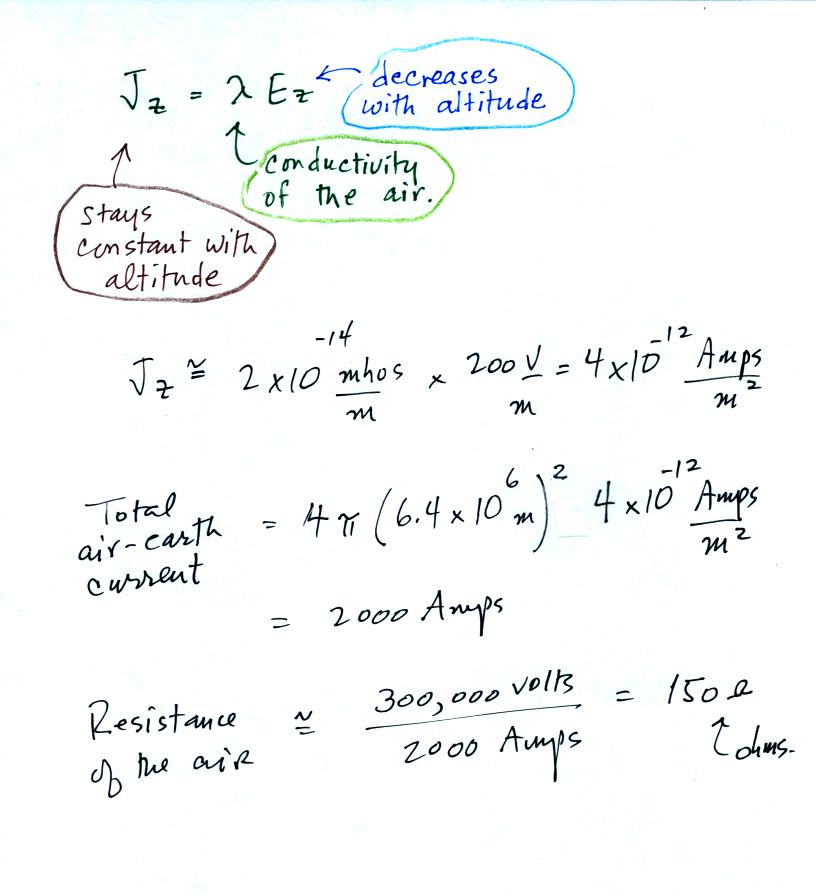 J_z = λ E_z ← decreases
with altitude
↑ ↑ conductivity
of the air.
stays
constant with
altitude
J_z ≅ 2 x 10^-14 mhos/m x 200 V/m = 4 x 10^-12 Amps/m^2
Total
air-earth
current
= 4 π (6.4 x 10^6 m)^2 4 x 10^-12 Amps/m^2
= 2000 Amps
Resistance
of the air
≅ 300,000 volts/2000 Amps = 150 Ω
↑ ohms.